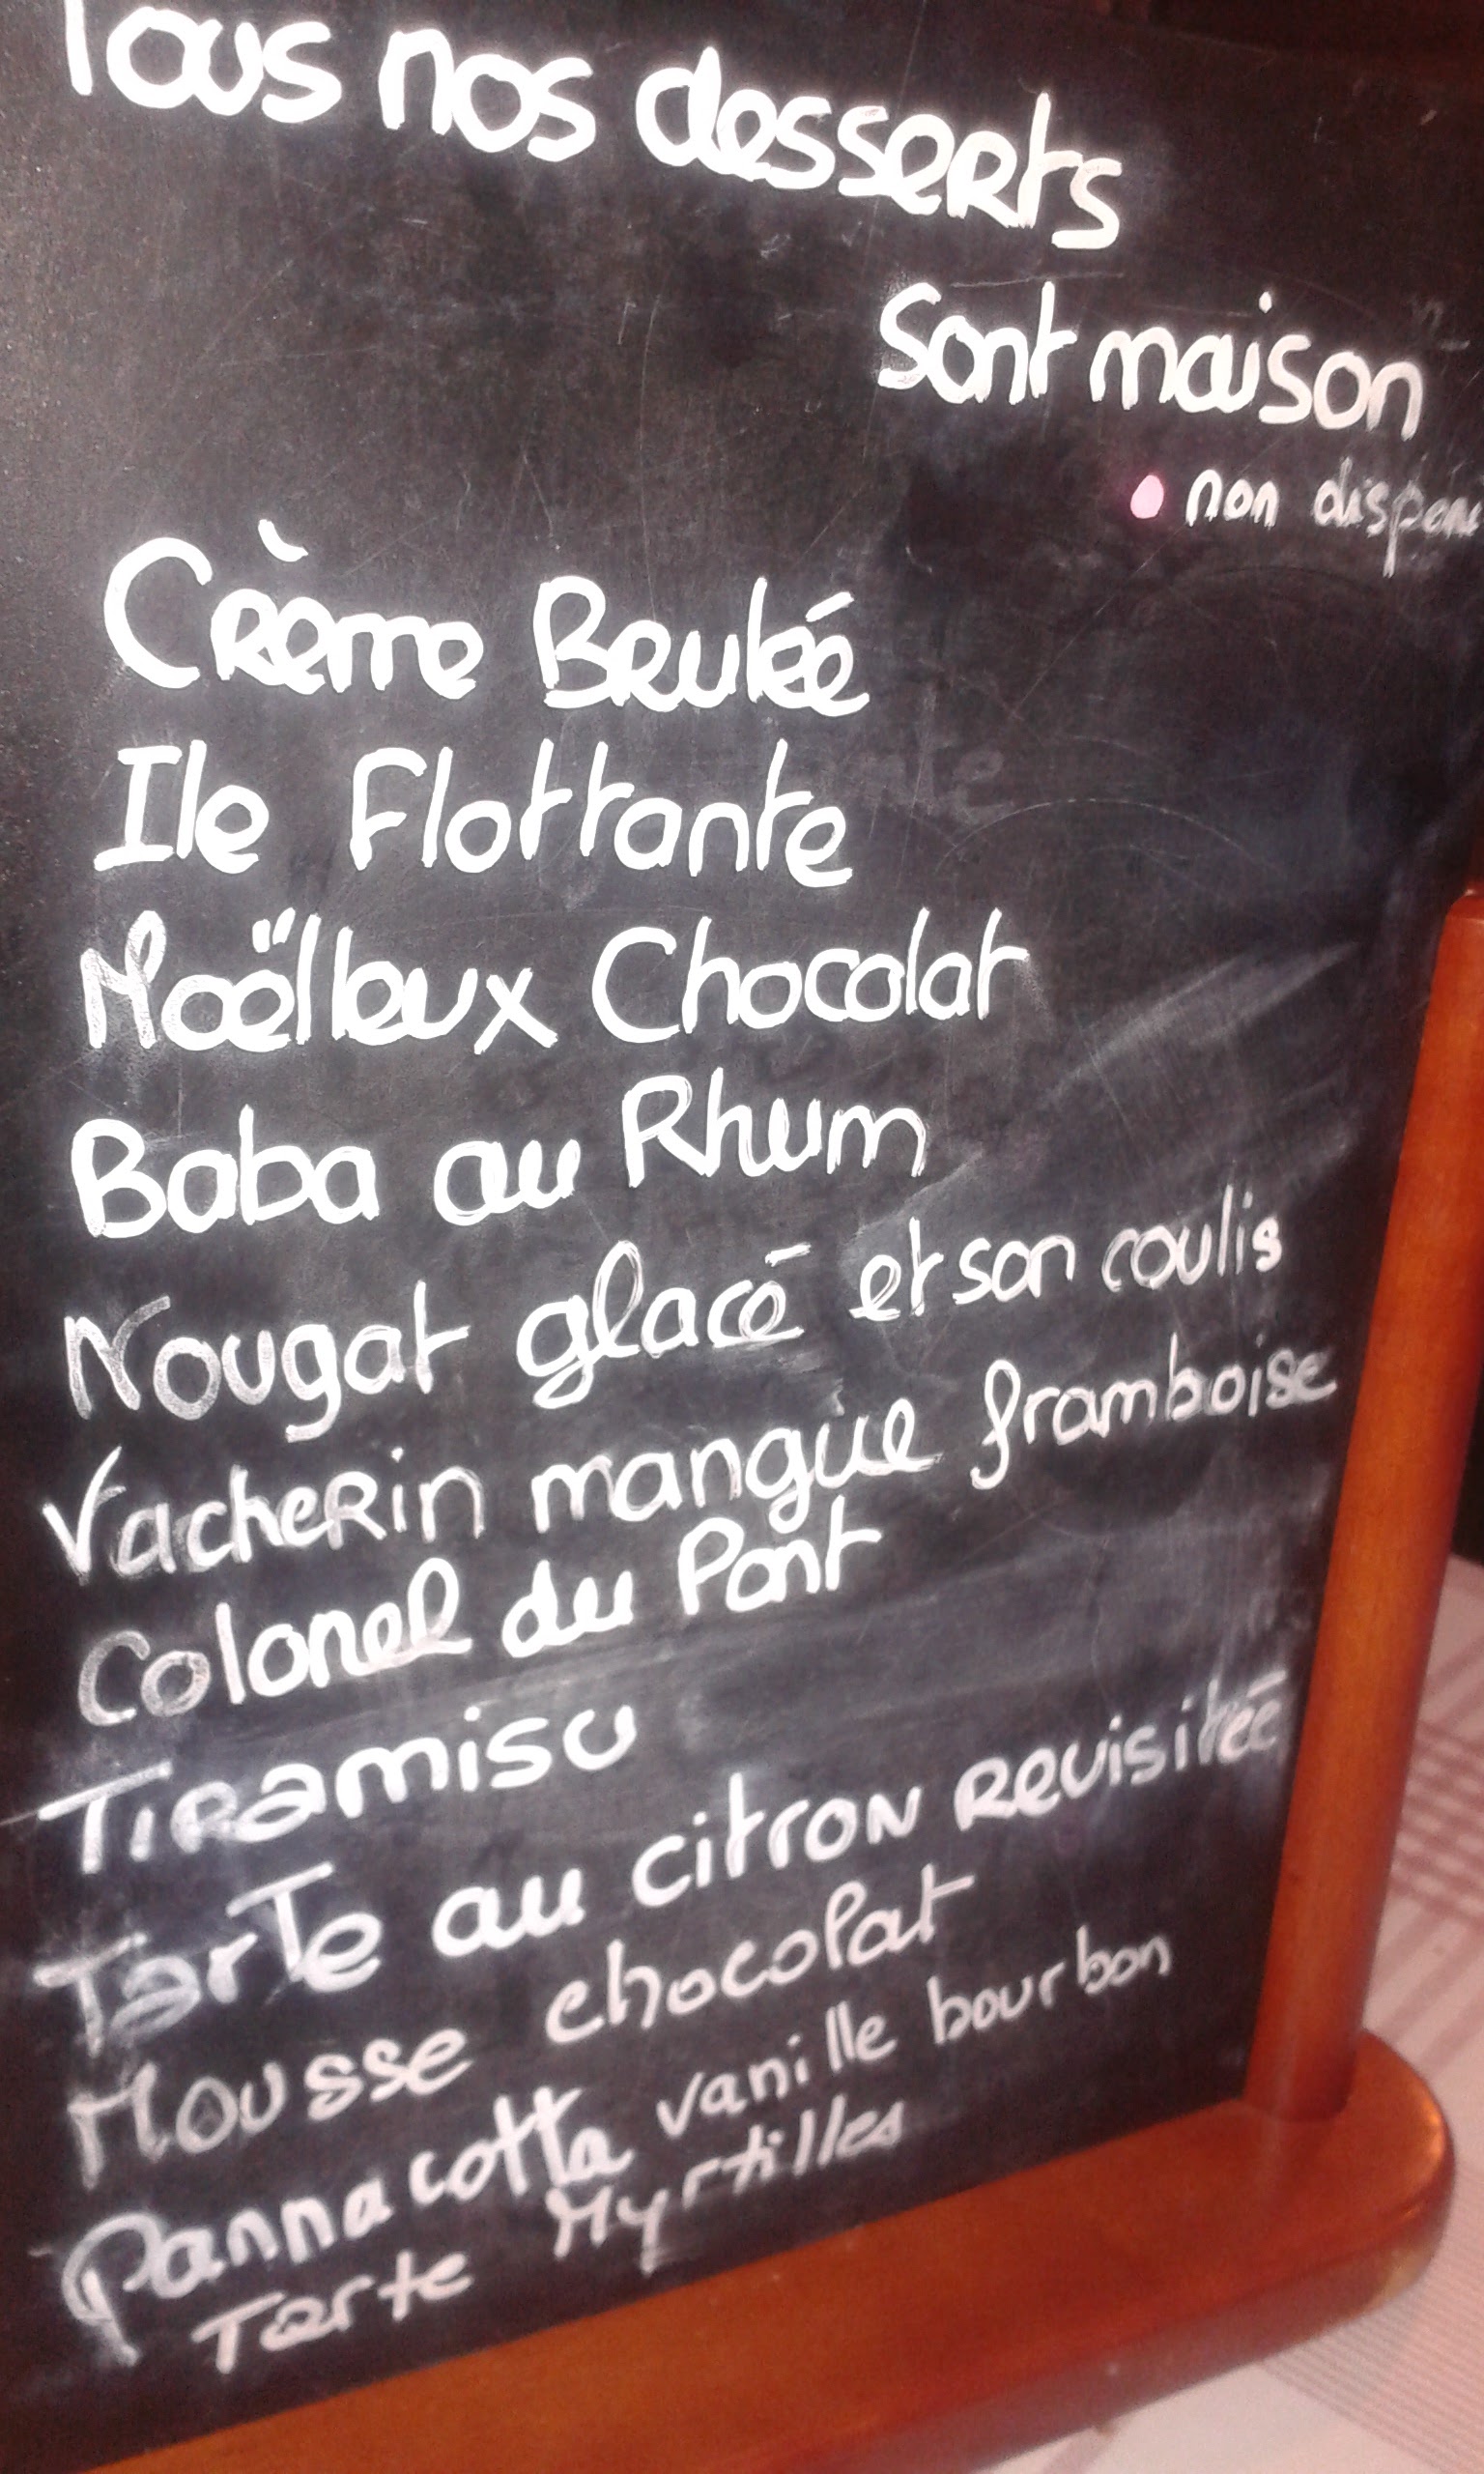 Tous nos desserts
Sont maison
non dispon
Crème Brulée
Ile Flottante
Moëlleux Chocolat
Baba au Rhum
Nougat glacé et son coulis
Vacherin mangue framboise
Colonel du Pont
Tiramisu
Tarte au citron revisitée
Mousse chocolat
Panna cotta vanille bourbon
Tarte Myrtilles